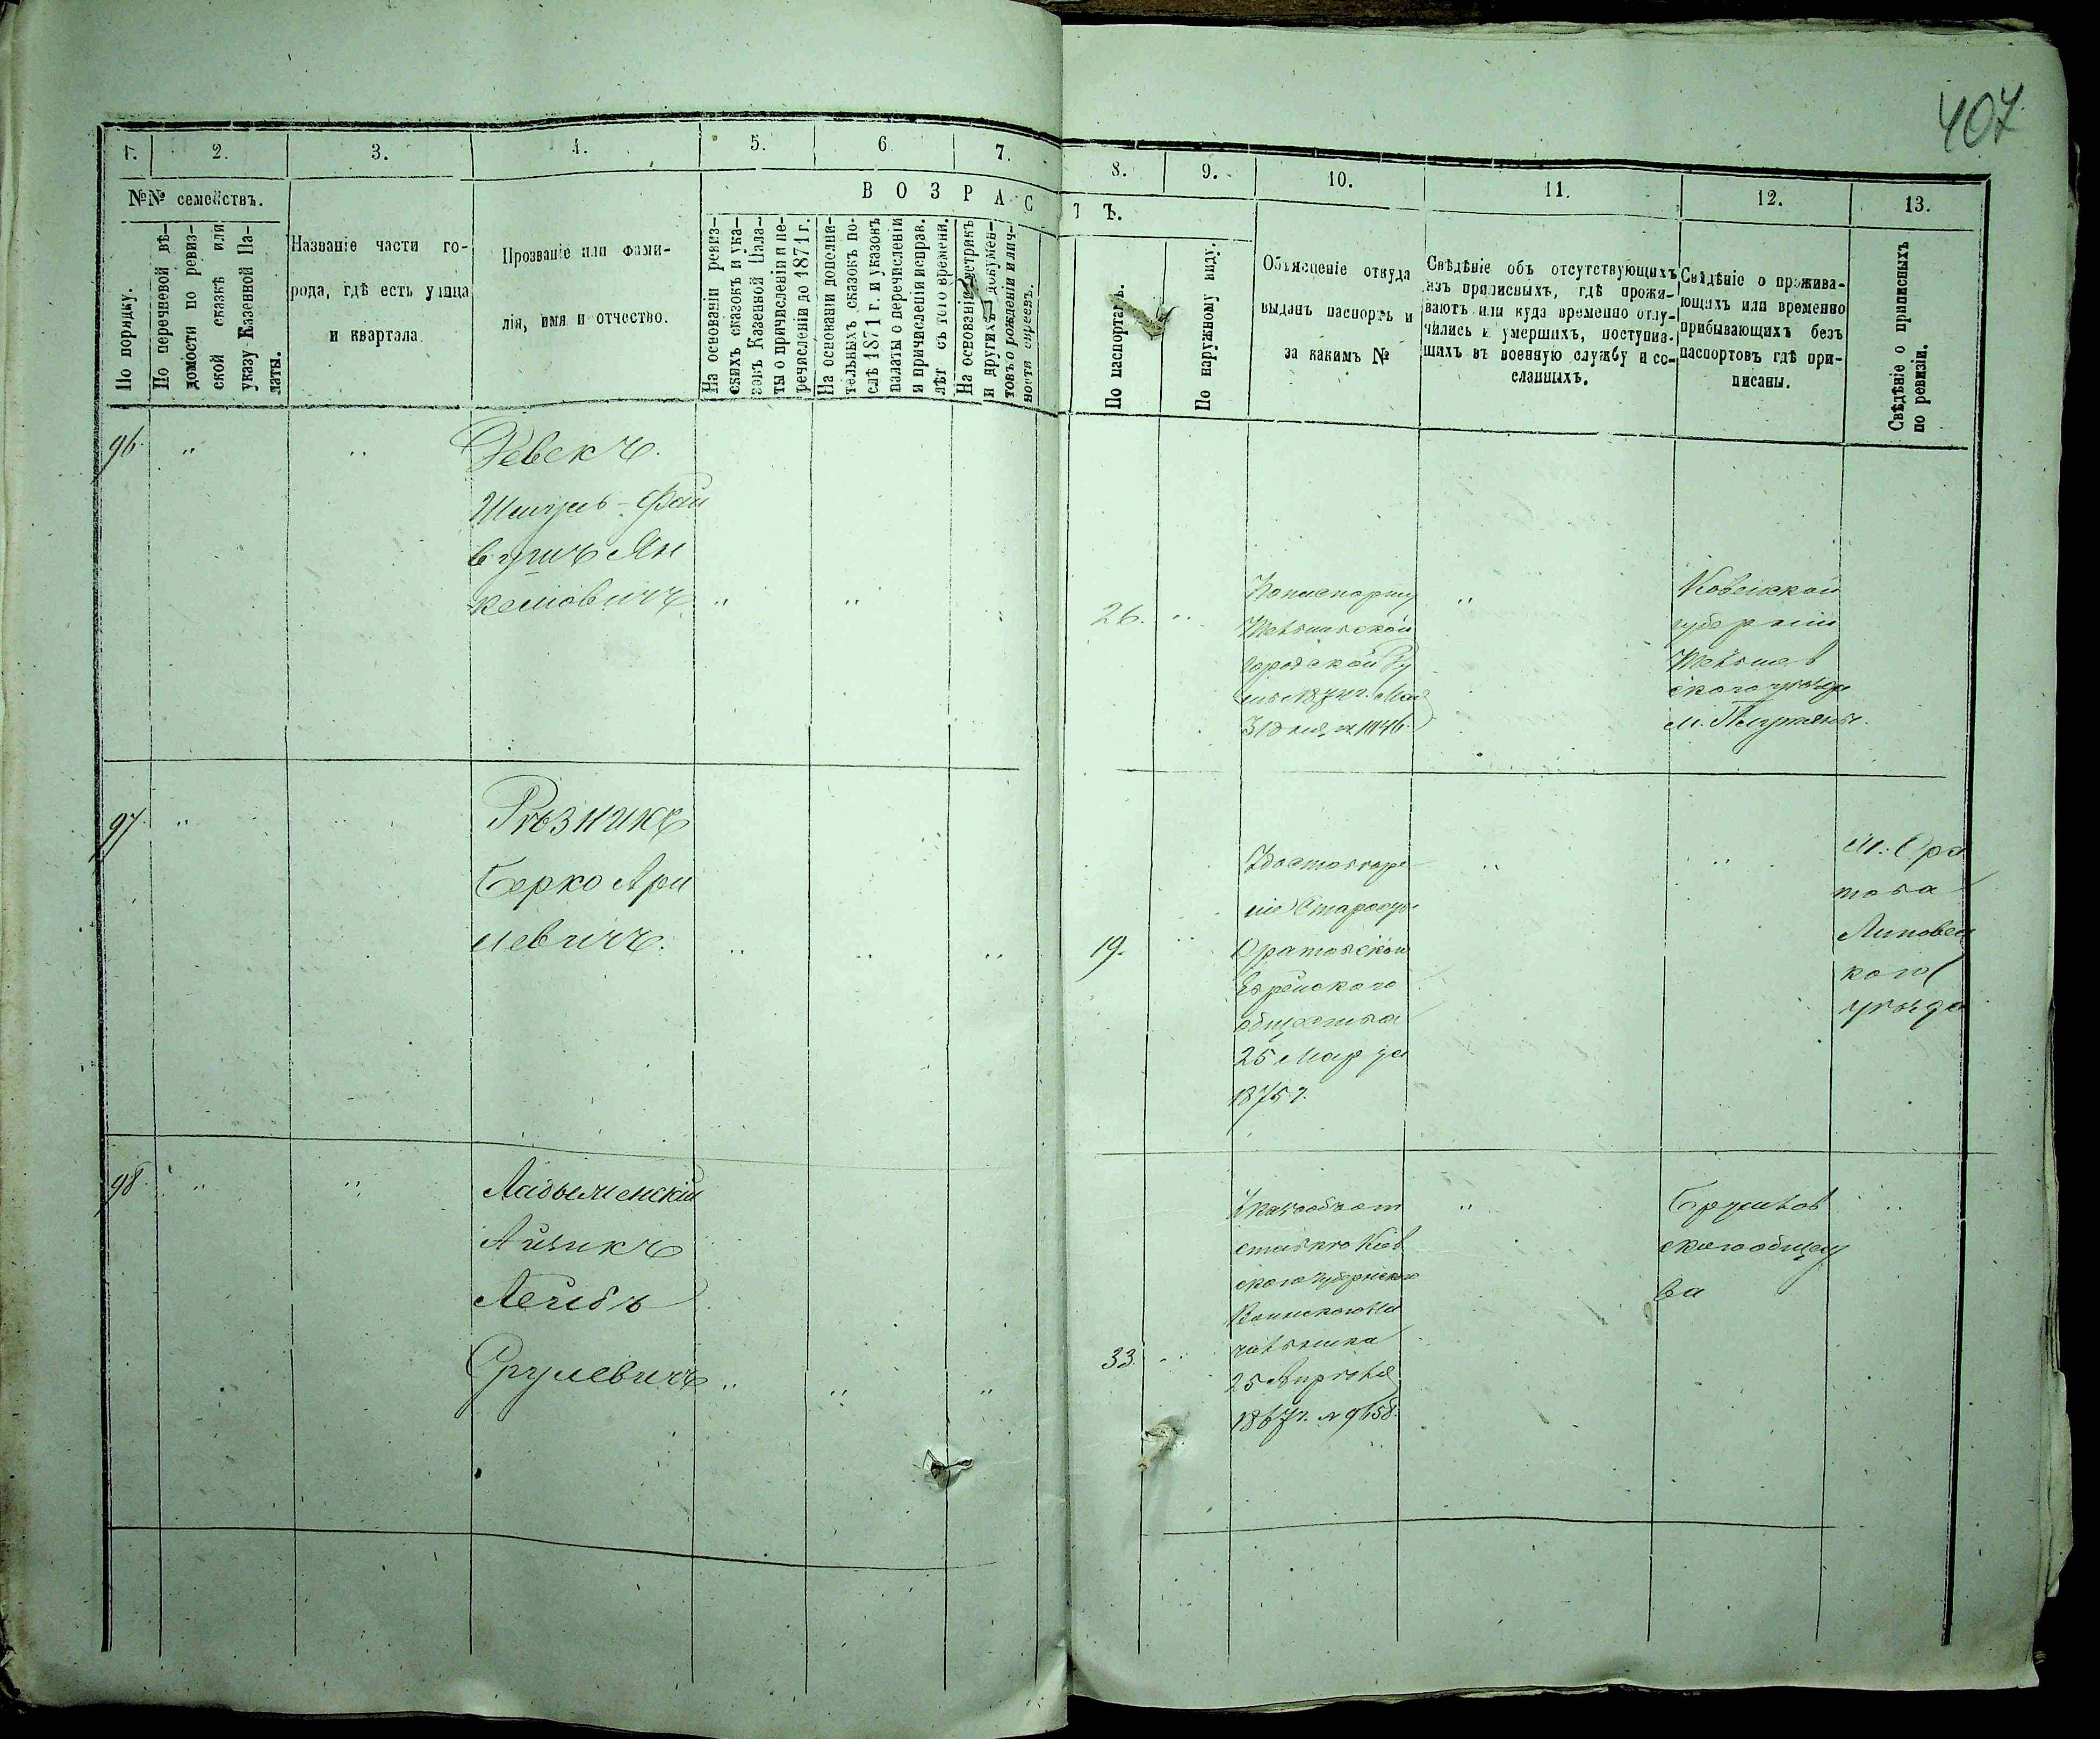 407
1. 2. 3. 4. 5. 6 7. 8. 9. 10. 11. 12. 13.
№№ семействъ.
По порядку.
По перечневой вѣ-
домости по ревиз-
ской сказкѣ или
указу Казенной Па-
латы.
Названіе части го-
рода, гдѣ есть улица
и квартала
Прозваніе или фами-
лія, имя и отчество.
ВОЗРАСТЪ.
На основаніи ревиз-
скихъ сказокъ и ука-
зовъ Казенной Пала-
ты о причисленіи и пе-
речисленіи до 1871 г.
На основаніи дополни-
тельныхъ сказокъ по-
слѣ 1871 г. и указовъ
палаты о перечисленіи
и причисленіи исправ.
лѣт съ того времени.
На основаніи метрикъ
и другихъ докумен-
товъ о рожденіи и лич-
ности евреевъ.
По паспортамъ.
По наружному виду.
Объясненіе откуда
выданъ паспортъ и
за какимъ №
Свѣдѣніе объ отсутствующихъ
изъ приписныхъ, гдѣ прожи-
ваютъ или куда временно отлу-
чились и умершихъ, поступив-
шихъ въ военную службу и со-
сланныхъ.
Свѣдѣніе о прожива-
ющихъ или временно
прибывающихъ безъ
паспортовъ гдѣ при-
писаны.
Свѣдѣніе о приписныхъ
по ревизіи.
96. " "
Фай
вушъ Ян
келіовичъ " "
26. "
Попаспорту
городской Ду
31 дня № 1446.
"
Ковенской
губерніи
скаго уѣзда
97 "
Рѣзникъ
Берко Ари
левичъ. " " "
19. "
Удостовѣре
ніе Старосты
Оратовскаго
Еврейскаго
общества
25 Марта
1875 г.
" "
м. Ора
това
Липовец
каго
уѣзда
98. " "
Ладыженскій
Айзикъ
Лейбъ
Срулевичъ " " "
33. "
Указъ объ от
ставкѣ Кіев
скаго Губернскаго
Воинскаго На
чальника
25 Апрѣля
1867 г. №
"
Брусилов
скаго общест
ва
"